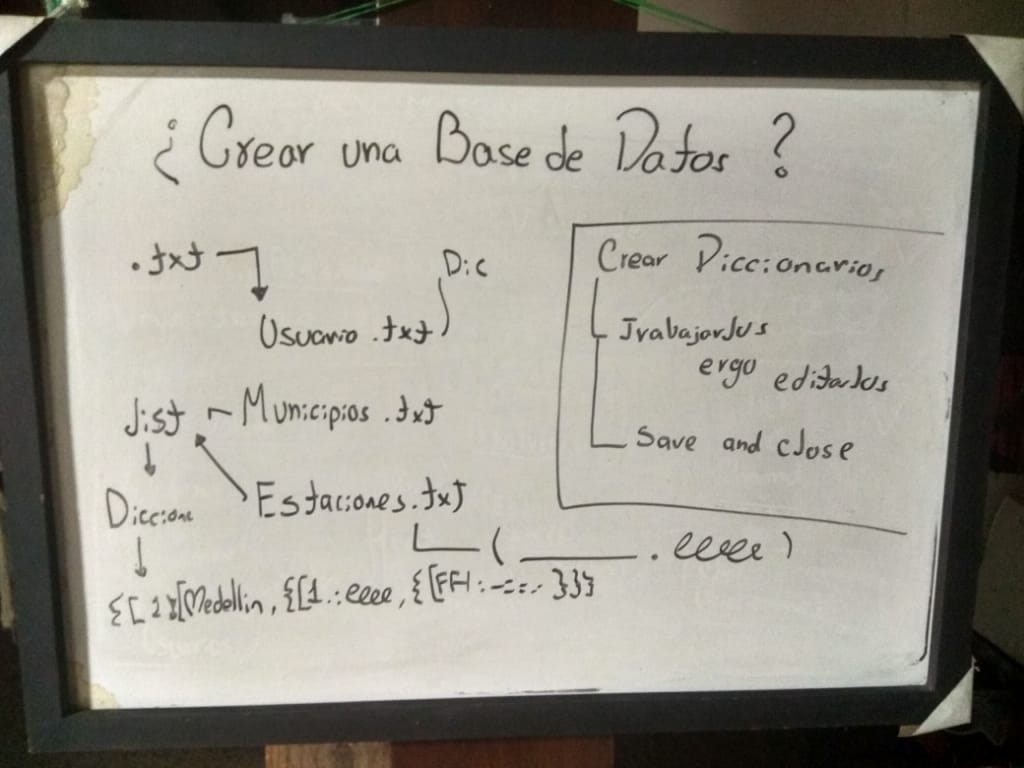 ¿Crear una Base de Datos?
.txt
Dic
Usuario .txt
list Municipios .txt
Estaciones.txt
Diccione
( ______ . eeeee )
{[ 2 ]:[Medellin, {[1.:eeee, {[FH:-==-- }}}
Crear Diccionarios
Trabajarlos
ergo editarlos
Save and close